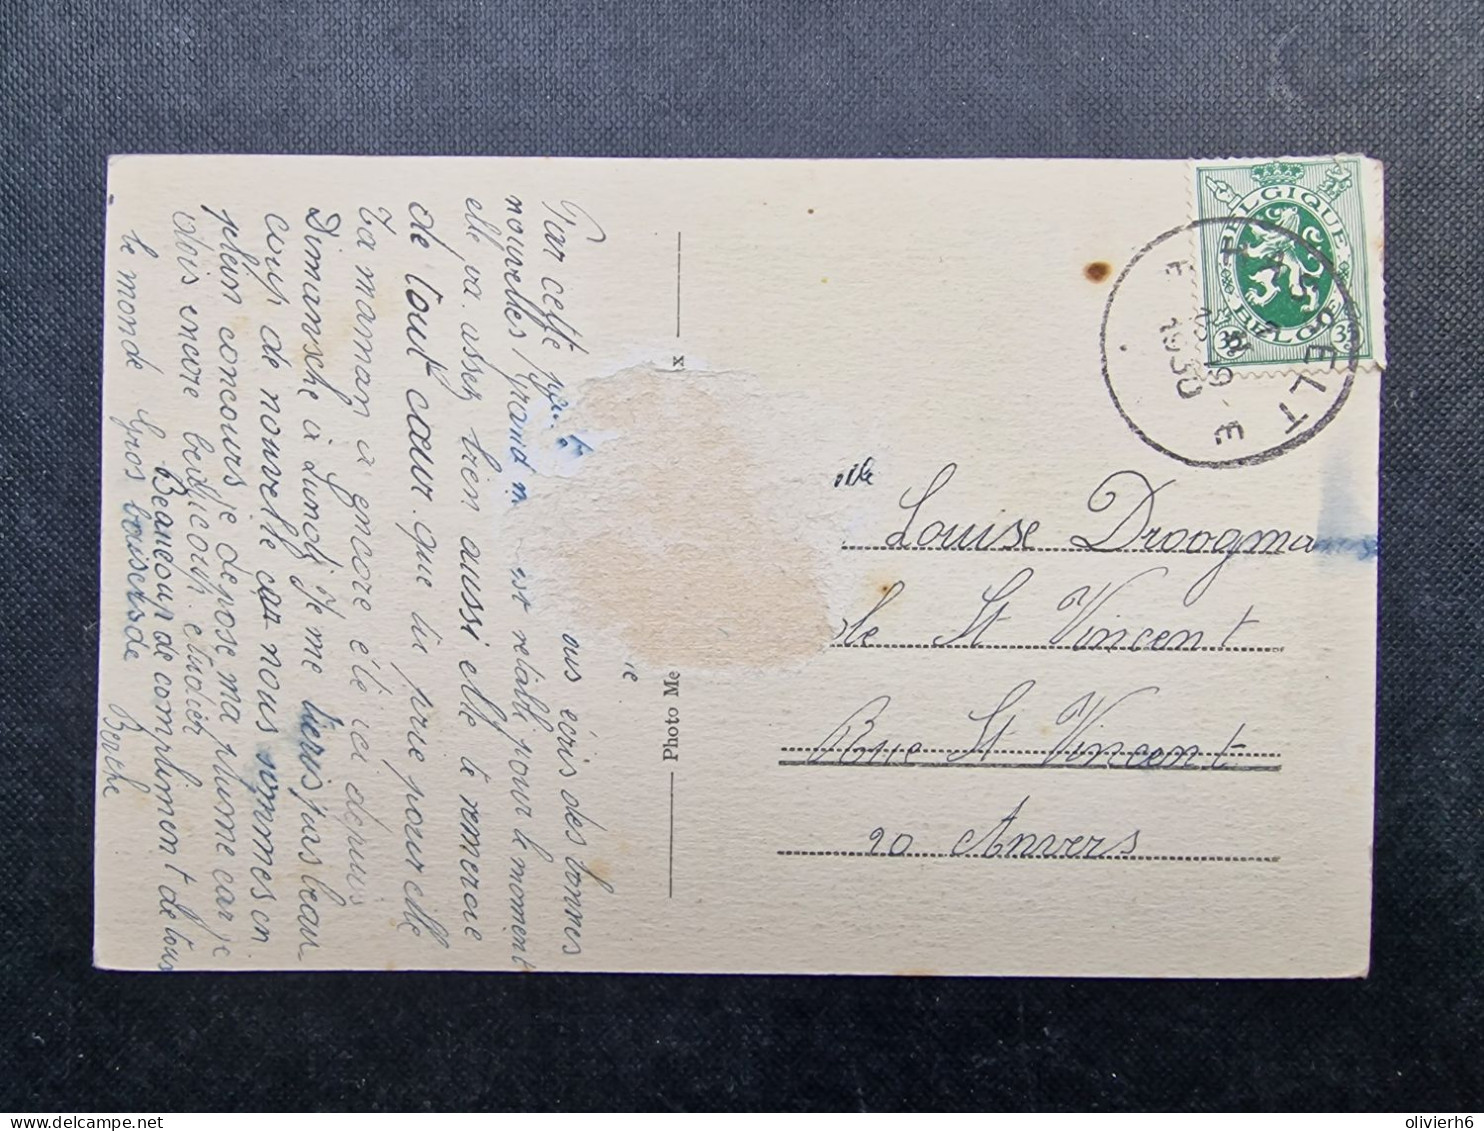 Par cette
ous écris des bonnes
nouvelles Grand
est rétabli pour le moment
elle va assez bien aussi elle te remercie
de tout cœur que tu prie pour elle
ta maman a encore été ici depuis
Dimansche à Lundi Je me tiens pas beau
coup de nouvelle car nous sommes en
plein concours je depose ma plume car je
dois encore beaucoup etudier
Beaucoup de compliment de tous
le monde Gros baisers de
Berthe
Photo Me
x
lle Louise Droogmans
ole St Vincent
Rue St Vincent
20 Anvers
BELGIQUE
BELGIE
3c 3c
HASSELT
E 18 E
1930
delcampe.net
olivierh6